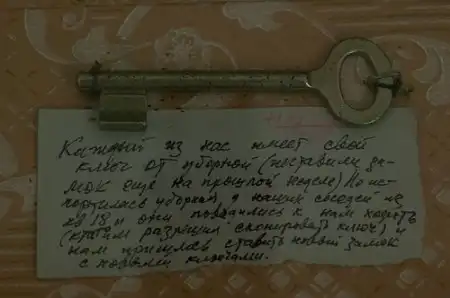 Каждый из нас имеет свой
ключ от уборной (поставили за-
мок еще на прошлой неделе) Но ис-
портилась уборная у наших соседей из
кв 18 и они повадились к нам ходить
(кто-то им разрешил скопировать ключ) и
нам пришлось ставить новый замок
с новыми ключами.